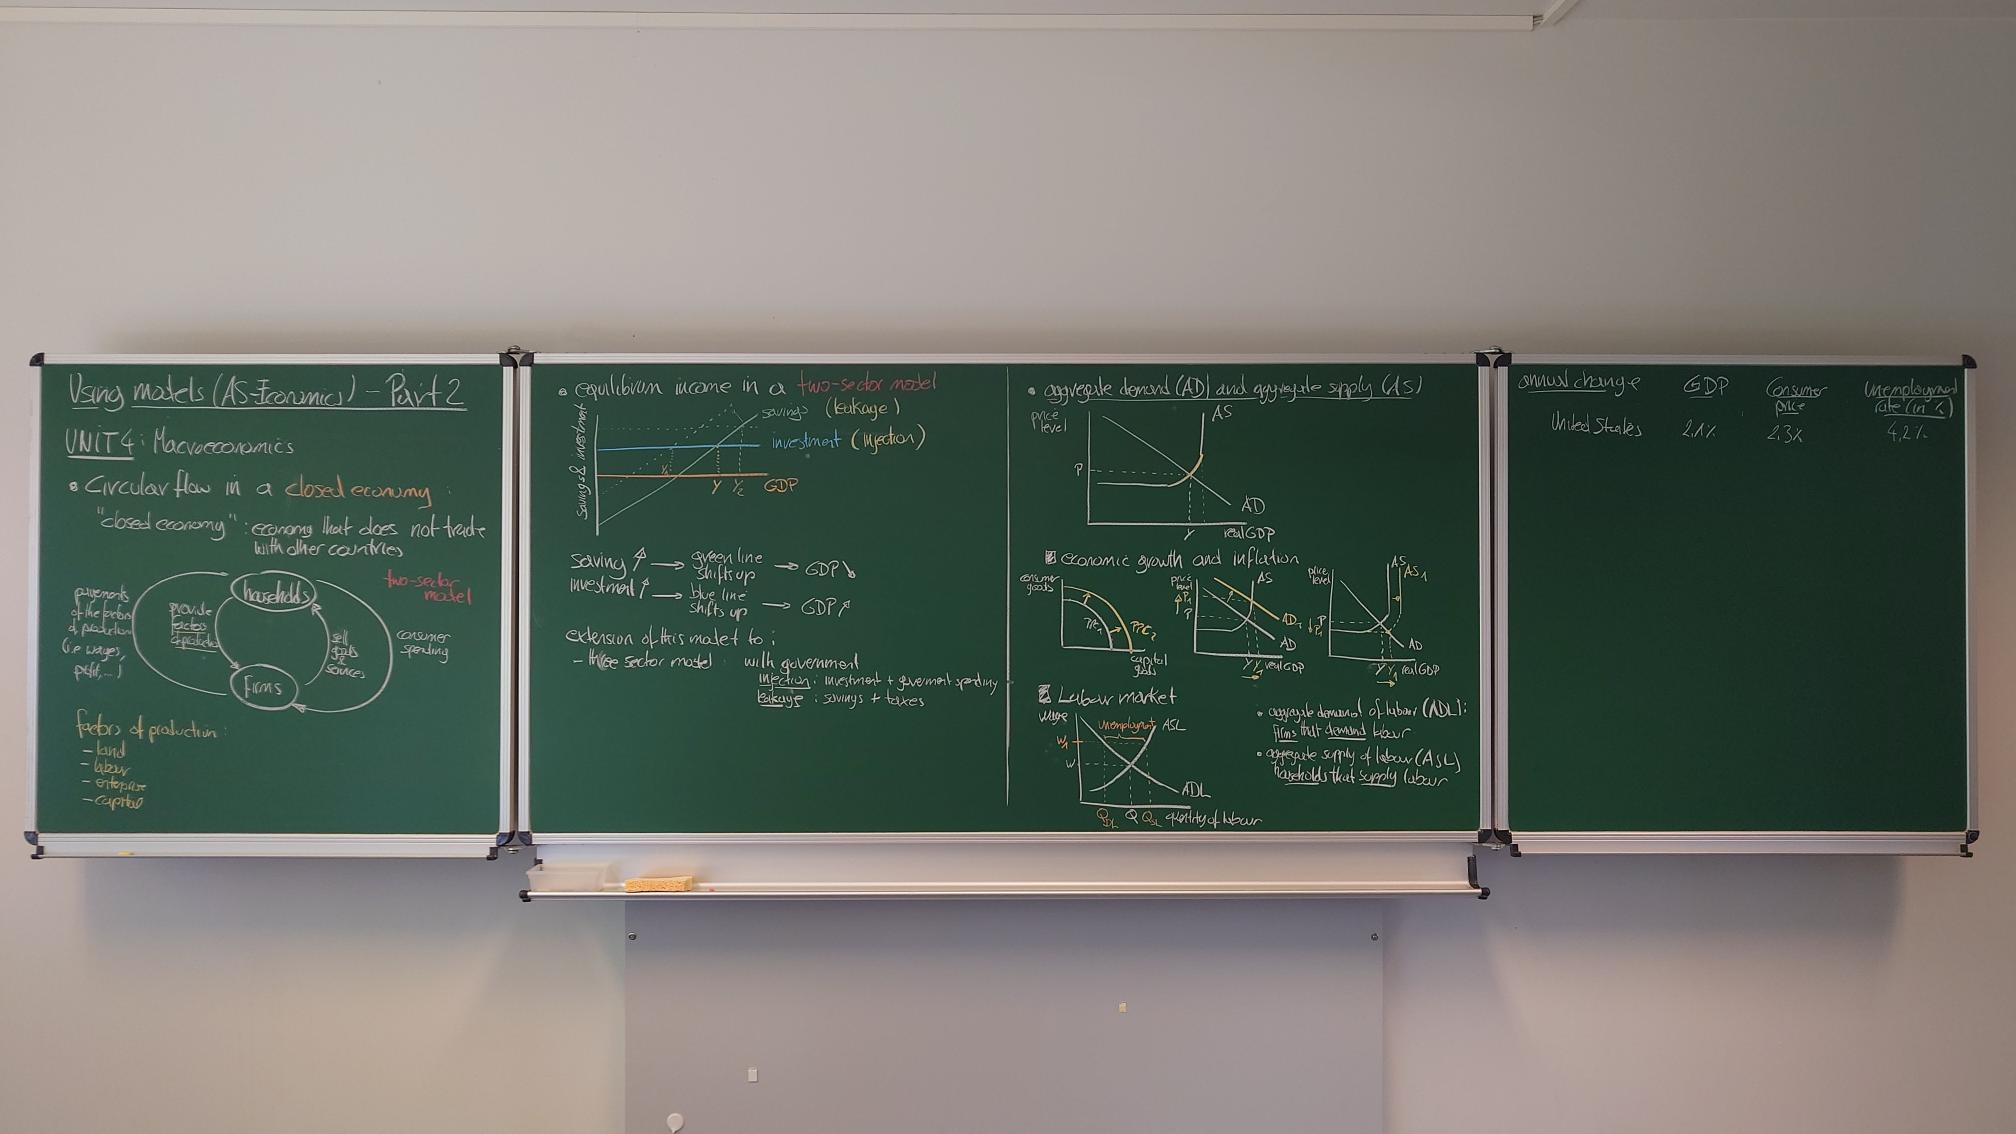 Using models (AS-Economics) - Part 2
UNIT 4: Macroeconomics
• Circular flow in a closed economy:
"closed economy": economy that does not trade
with other countries
two-sector
model
households
payements
of the factors
of production
(i.e wages,
profit,...)
provide
factors
of production
sell
goods
&
services
consumer
spending
Firms
factors of production:
- land
- labour
- enterprise
- capital
• equilibrium income in a two-sector model
savings & investment
savings (leakage)
investment (injection)
Y1 Y Y2 GDP
saving ↑ → green line
shifts up → GDP ↘
investment ↑ → blue line
shifts up → GDP ↗
extension of this model to:
- three sector model: with government
injection: investment + goverment spending
leakage: savings + taxes
• aggregate demand (AD) and aggregate supply (AS)
price
level
AS
P
AD
Y real GDP
economic growth and inflation
consumer
goods
PPC1
PPC2
capital
goods
price
level
AS
P1
P
AD1
AD
Y Y1 real GDP
price
level
AS
AS1
P
P1
AD
Y Y1 real GDP
Labour market
wage
unemployment
ASL
W1
W
ADL
QDL Q QSL quantity of labour
• aggregate demand of labour (ADL):
firms that demand labour
• aggregate supply of labour (ASL)
households that supply labour
annual change GDP Consumer
price Unemployment
rate (in %)
United States 2,1% 2,3% 4,2%